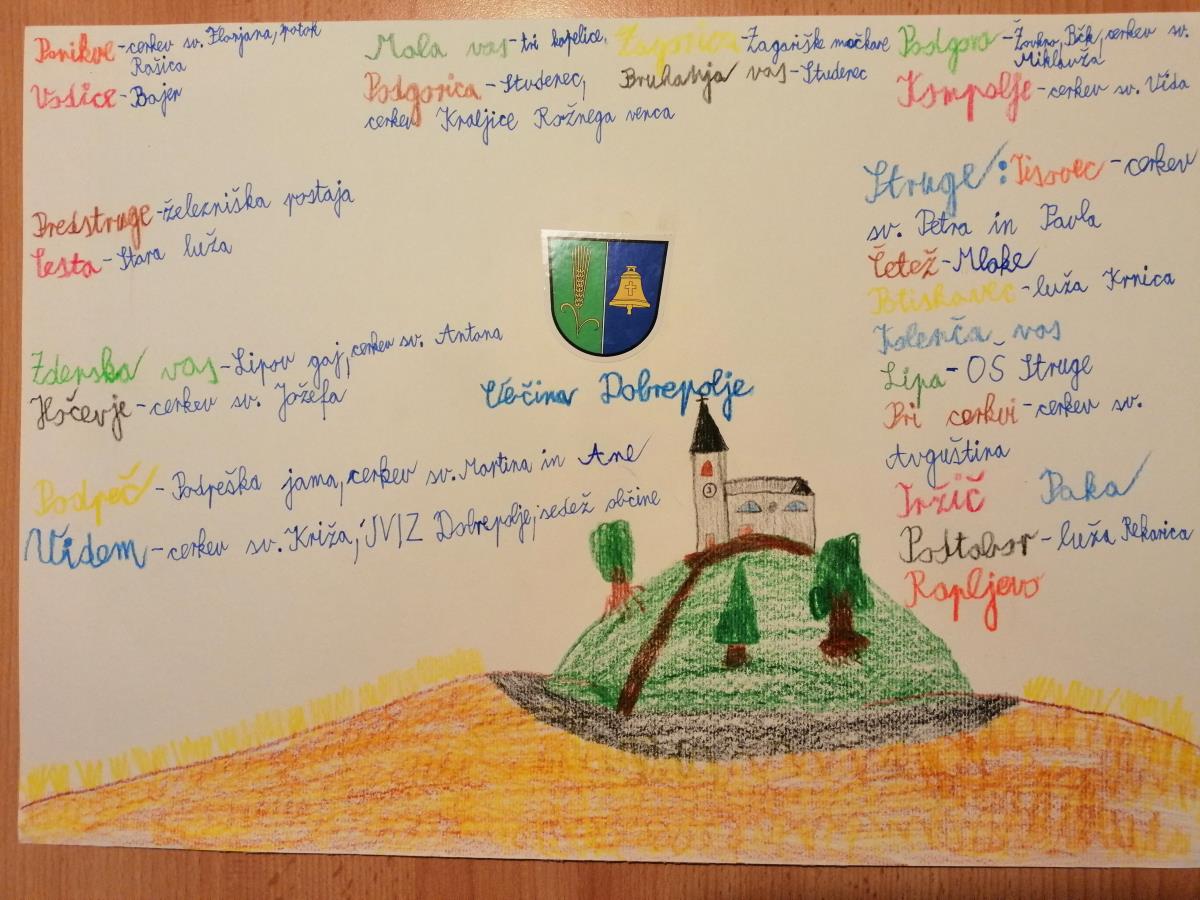 Ponikve - cerkev sv. Florjana, potok
Rašica
Vodice - Bajer
Mala vas - tri kapelice,
Podgorica - Studenec,
cerkev Kraljice Rožnega venca
Zagorica - Zagoriške mačkare
Bruhanja vas - Studenec
Podgora - Žovkno, Bčk, cerkev sv.
Miklavža
Kompolje - cerkev sv. Vida
Predstruge - železniška postaja
Cesta - Stara luža
Zdenska vas - Lipov gaj, cerkev sv. Antona
Hočevje - cerkev sv. Jožefa
Podpeč - Podpeška jama, cerkev sv. Martina in Ane
Videm - cerkev sv. Križa, JVIZ Dobrepolje, sedež občine
Občina Dobrepolje
Struge: Tisovec - cerkev
sv. Petra in Pavla
Četež - Mlake
Potiskavec - luža Krnica
Kolenča vas
Lipa - OŠ Struge
Pri cerkvi - cerkev sv.
Avguština
Tržič Paka
Podtabor - luža Rekarica
Rapljevo